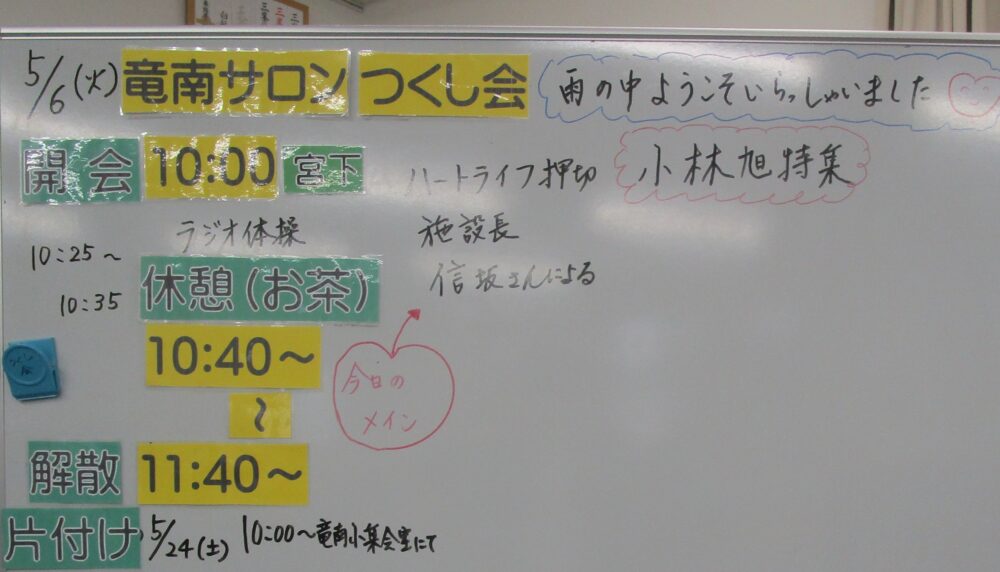 5/6(火) 竜南サロン つくし会 雨の中ようこそいらっしゃいました
開会 10:00 宮下 ハートライフ押切 小林旭特集
ラジオ体操 施設長
10:25~ 信坂さんによる
10:35 休憩(お茶)
10:40~
今日の
メイン
~
解散 11:40~
片付け 5/24(土) 10:00~竜南小集会室にて
つくし会